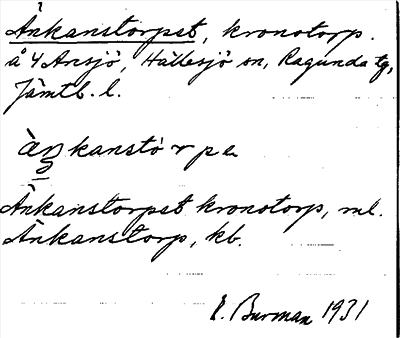 Änkanstorpet, kronotorp.
å Y Ansjö, Hällesjö sn, Ragunda tg,
Jämtl. l.
kanstorpe
Änkanstorpet kronotorp, ml.
Änkanstorp, kb.
E. Burman 1931